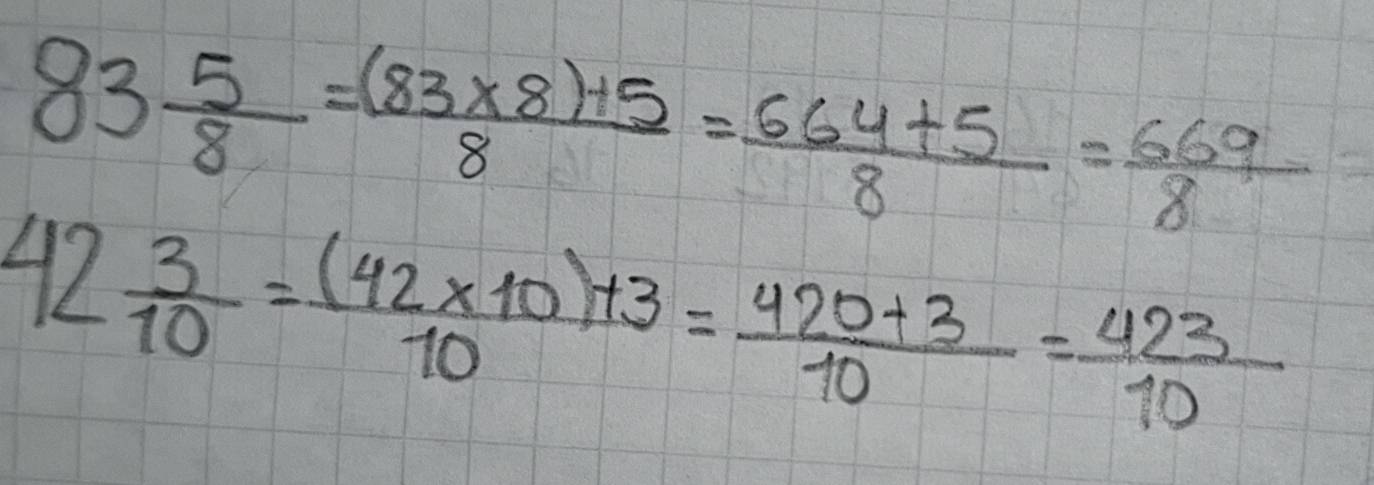 83 5/8 = (83 × 8) + 5 / 8 = 664 + 5 / 8 = 669 / 8
42 3/10 = (42 × 10) + 3 / 10 = 420 + 3 / 10 = 423 / 10